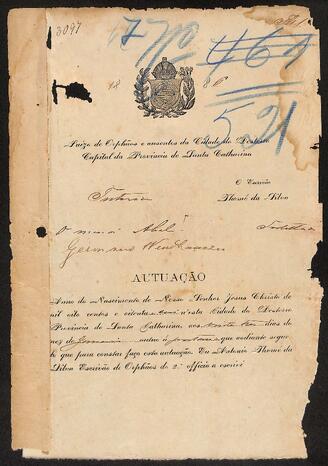 3097
770 461
18 86
521
Juizo de Orphãos e ausentes da Cidade do Desterro
Capital da Provincia de Santa Catharina
O Escrivão
Thomé da Silva
Tutoria
O menor Abel
Tutellado
Germano Wendhausen
AUTUAÇÃO
Anno do Nascimento de Nosso Senhor Jesus Christo de
mil oito centos e oitenta e seis n'esta Cidade do Desterro
Provincia de Santa Catharina, aos vinte tres dias do
mez de Janeiro autuo a que adiante segue
que para constar faço esta autuação. Eu Antonio Thomé da
Silva Escrivão de Orphãos do 2º officio a escrevi